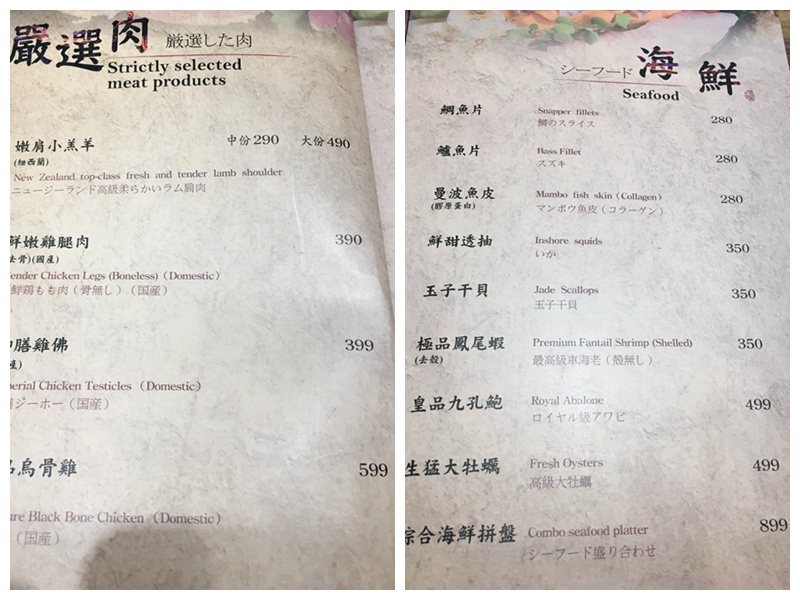 嚴選肉 厳選した肉
Strictly selected
meat products
嫩肩小羔羊 中份290 大份490
(紐西蘭)
New Zealand top-class fresh and tender lamb shoulder
ニュージーランド高級柔らかいラム肩肉
鮮嫩雞腿肉 390
去骨)(國產)
Tender Chicken Legs (Boneless)（Domestic）
鮮鶏もも肉（骨無し）（国産）
膳雞佛 399
產)
perial Chicken Testicles（Domestic）
ジーホー（国産）
烏骨雞 599
are Black Bone Chicken（Domestic）
（国産）
シーフード 海鮮
Seafood
鯛魚片 Snapper fillets 280
鯛のスライス
鱸魚片 Bass Fillet 280
スズキ
曼波魚皮 Mambo fish skin（Collagen） 280
(膠原蛋白) マンボウ魚皮（コラーゲン）
鮮甜透抽 Inshore squids 350
いか
玉子干貝 Jade Scallops 350
玉子干貝
極品鳳尾蝦 Premium Fantail Shrimp (Shelled) 350
(去殼) 最高級車海老（殻無し）
皇品九孔鮑 Royal Abalone 499
ロイヤル級アワビ
生猛大牡蠣 Fresh Oysters 499
高級大牡蠣
綜合海鮮拼盤 Combo seafood platter 899
シーフード盛り合わせ